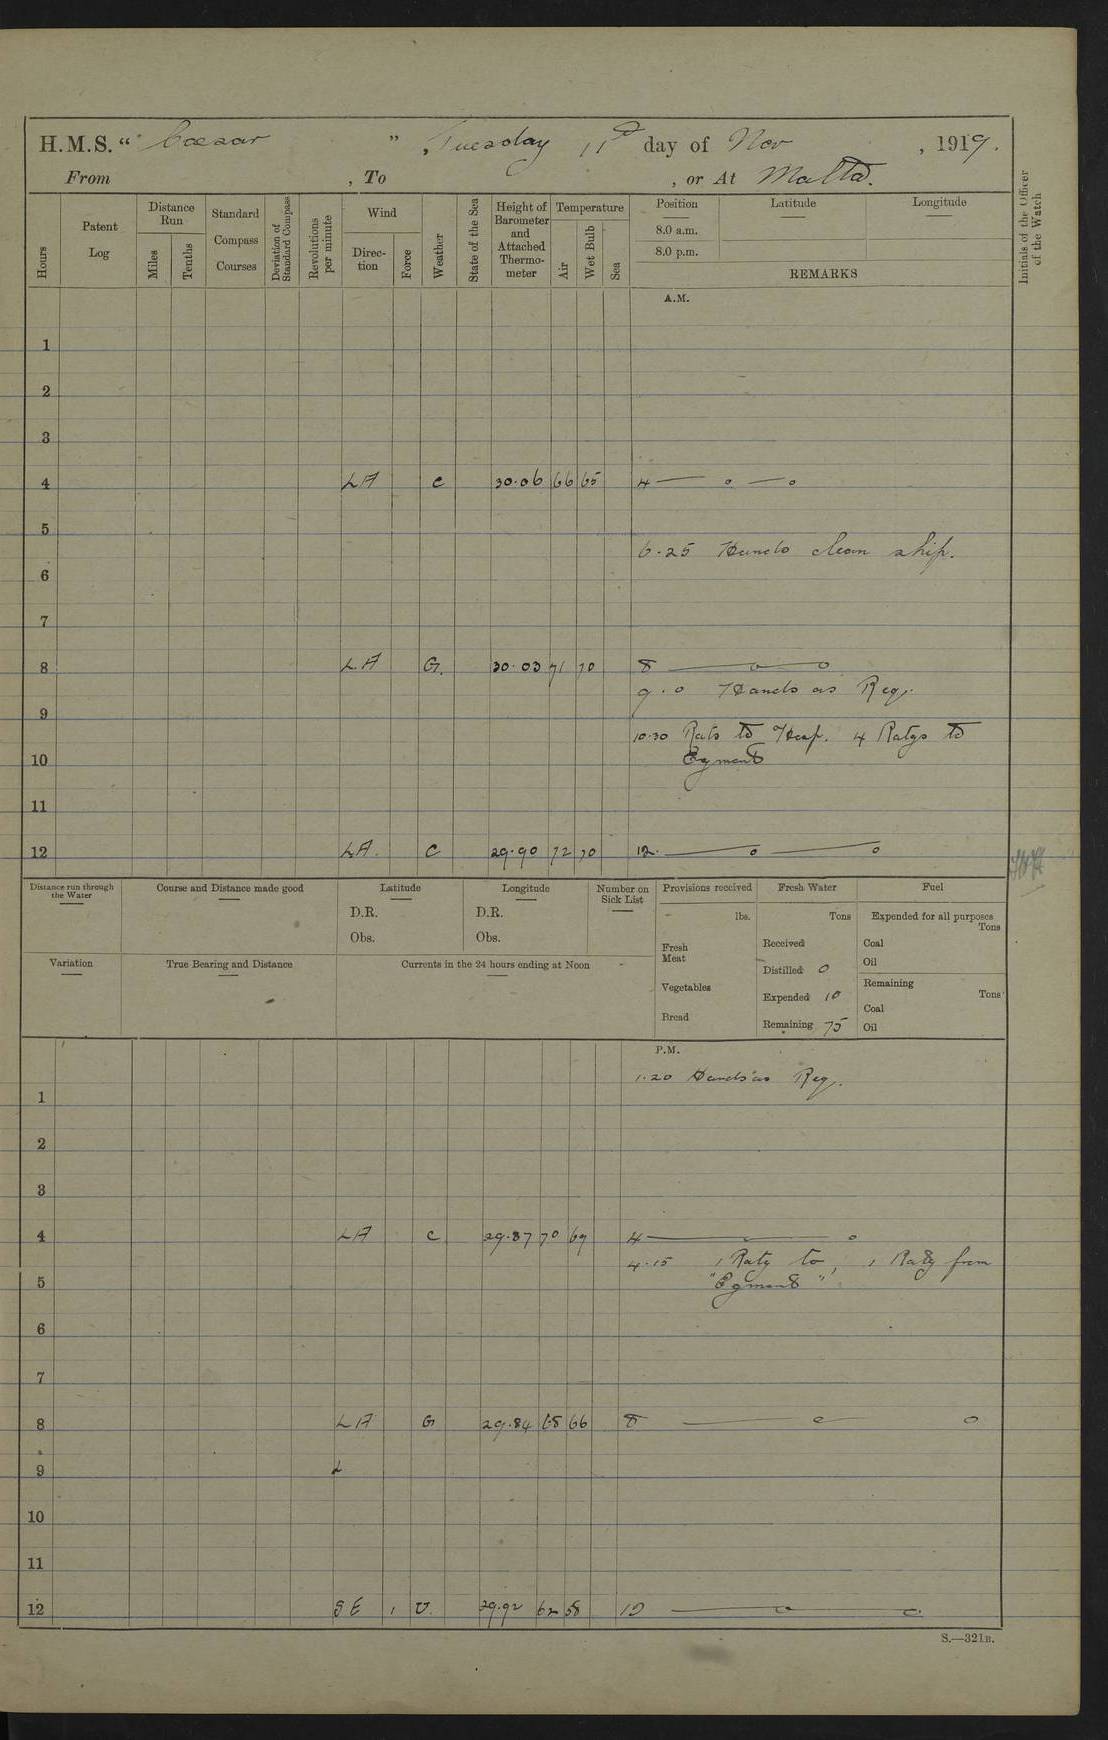 H.M.S. " Caesar " , Tuesday 11th day of Nov , 1919.
From , To , or At Malta.
Hours
Patent Log
Distance Run
Miles
Tenths
Standard Compass Courses
Deviation of Standard Compass
Revolutions per minute
Wind
Direction
Force
Weather
State of the Sea
Height of Barometer and Attached Thermometer
Temperature
Air
Wet Bulb
Sea
Position
8.0 a.m.
8.0 p.m.
Latitude
Longitude
REMARKS
Initials of the Officer of the Watch
A.M.
1
2
3
4 LA C 30.06 66 65 4 — o — o
5
6.25 Hands clean ship.
6
7
8 L.A G. 30.03 71 70 8 — o — o
9.0 Hands as Req.
9
10.30 Rats to Hosp. 4 Ratgs to
10 Egmont
11
12 LA. C 29.90 72 70 12. — o — o
Distance run through the Water
Course and Distance made good
Latitude
D.R.
Obs.
Longitude
D.R.
Obs.
Number on Sick List
Provisions received
lbs.
Fresh Meat
Vegetables
Bread
Fresh Water
Tons
Received
Distilled 0
Expended 10
Remaining 75
Fuel
Expended for all purposes
Tons
Coal
Oil
Remaining
Tons
Coal
Oil
Variation
True Bearing and Distance
Currents in the 24 hours ending at Noon
P.M.
1.20 Hands as Req.
1
2
3
4 LA C 29.87 70 69 4 — o
4.15 1 Ratg to, 1 Ratg from
5 "Egmont"
6
7
8 LA G 29.84 68 66 8 — o — o
9 L
10
11
12 SE 1 U. 29.92 62 58 12 — o — o
S.—321B.